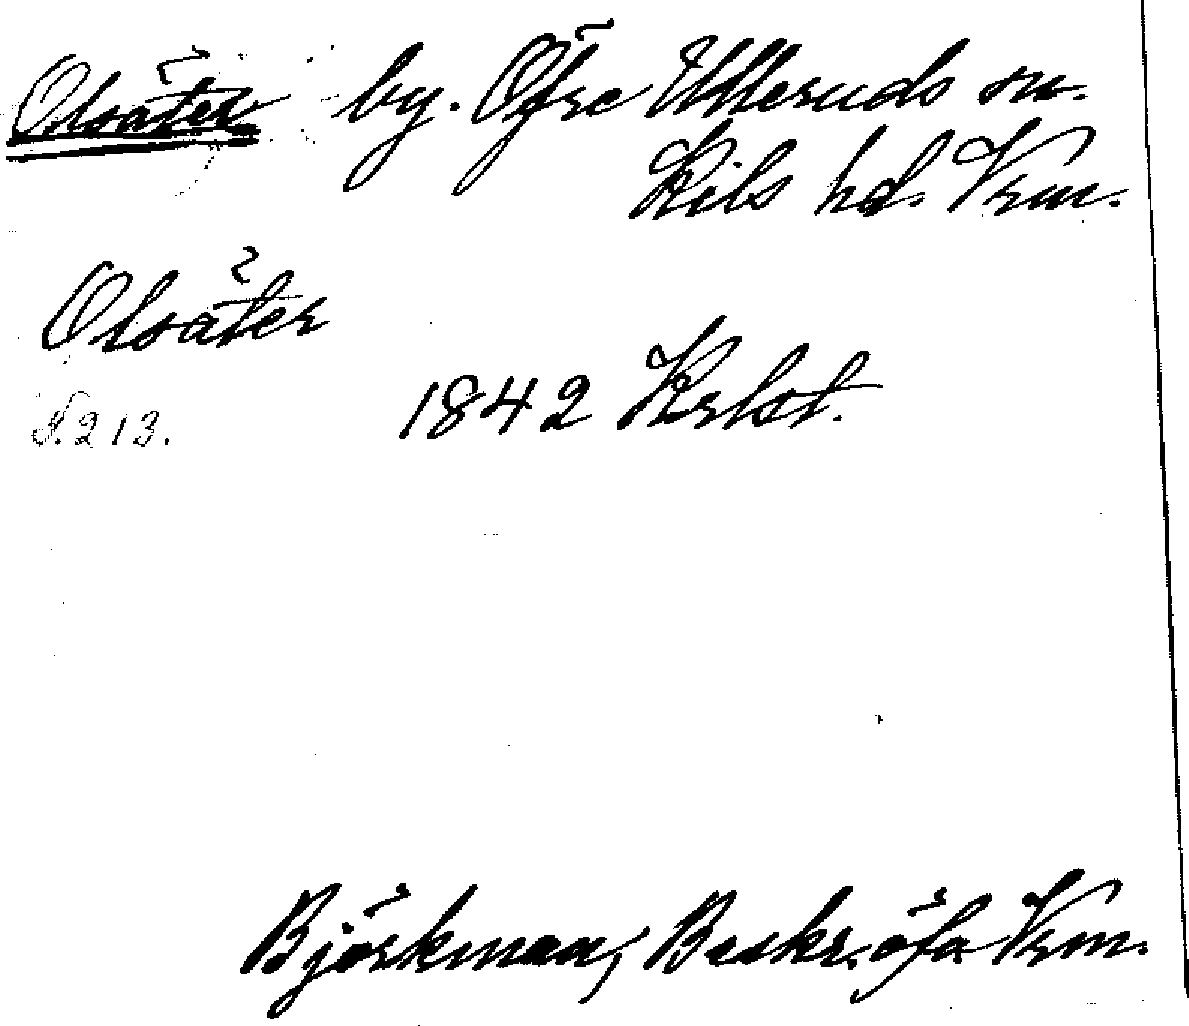 Olsäter by. Öfre Ulleruds sn.
Kils hd. Vrm.
Olsäter
1842 Krlst.
S. 213.
Björkman, Beskr. öfv. Vrm.